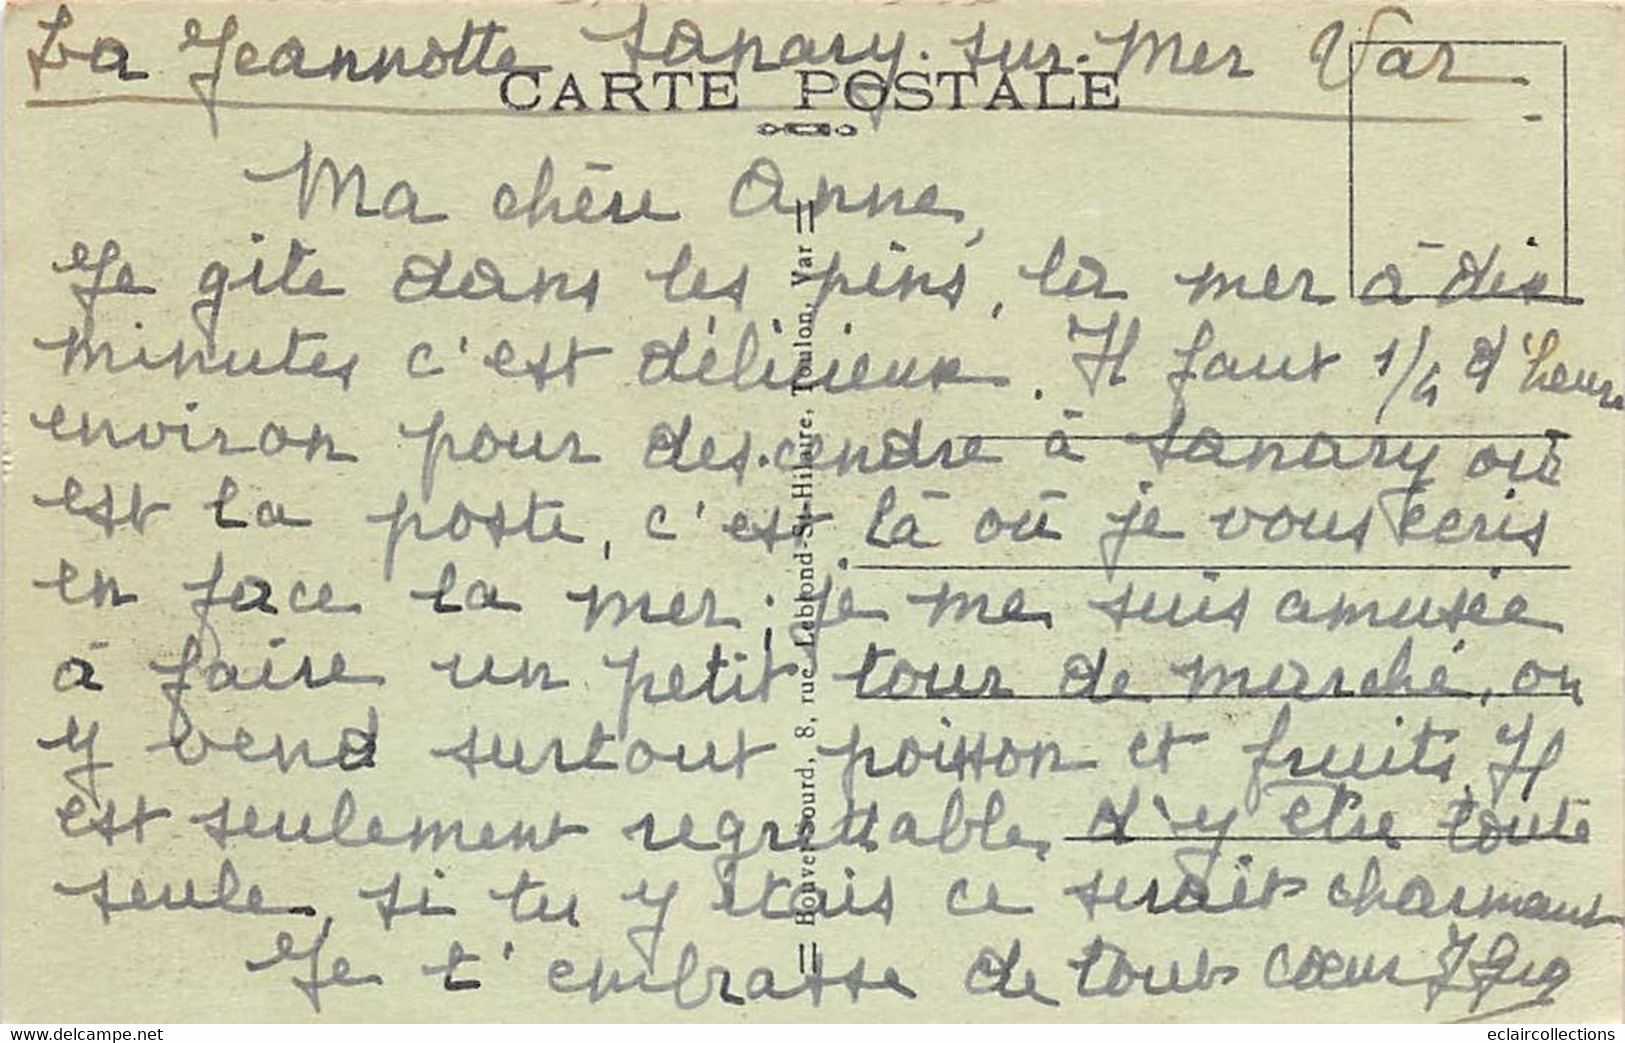 La Jeannotte Sanary-sur-Mer Var
CARTE POSTALE
Ma chère Anne,
Je gite dans les pins, la mer à dix
minutes c'est délicieux. Il faut 1/4 d'heure
environ pour descendre à Sanary où
est la poste, c'est là où je vous écris
en face la mer. je me suis amusée
à faire un petit tour de marché, on
y vend surtout poisson et fruits. Il
est seulement regrettable d'y être toute
seule, si tu y étais ce serait charmant
Je t'embrasse de tout cœur
Bouvet-Sourd, 8, rue Leblond-St-Hilaire, Toulon, Var
eclaircollections